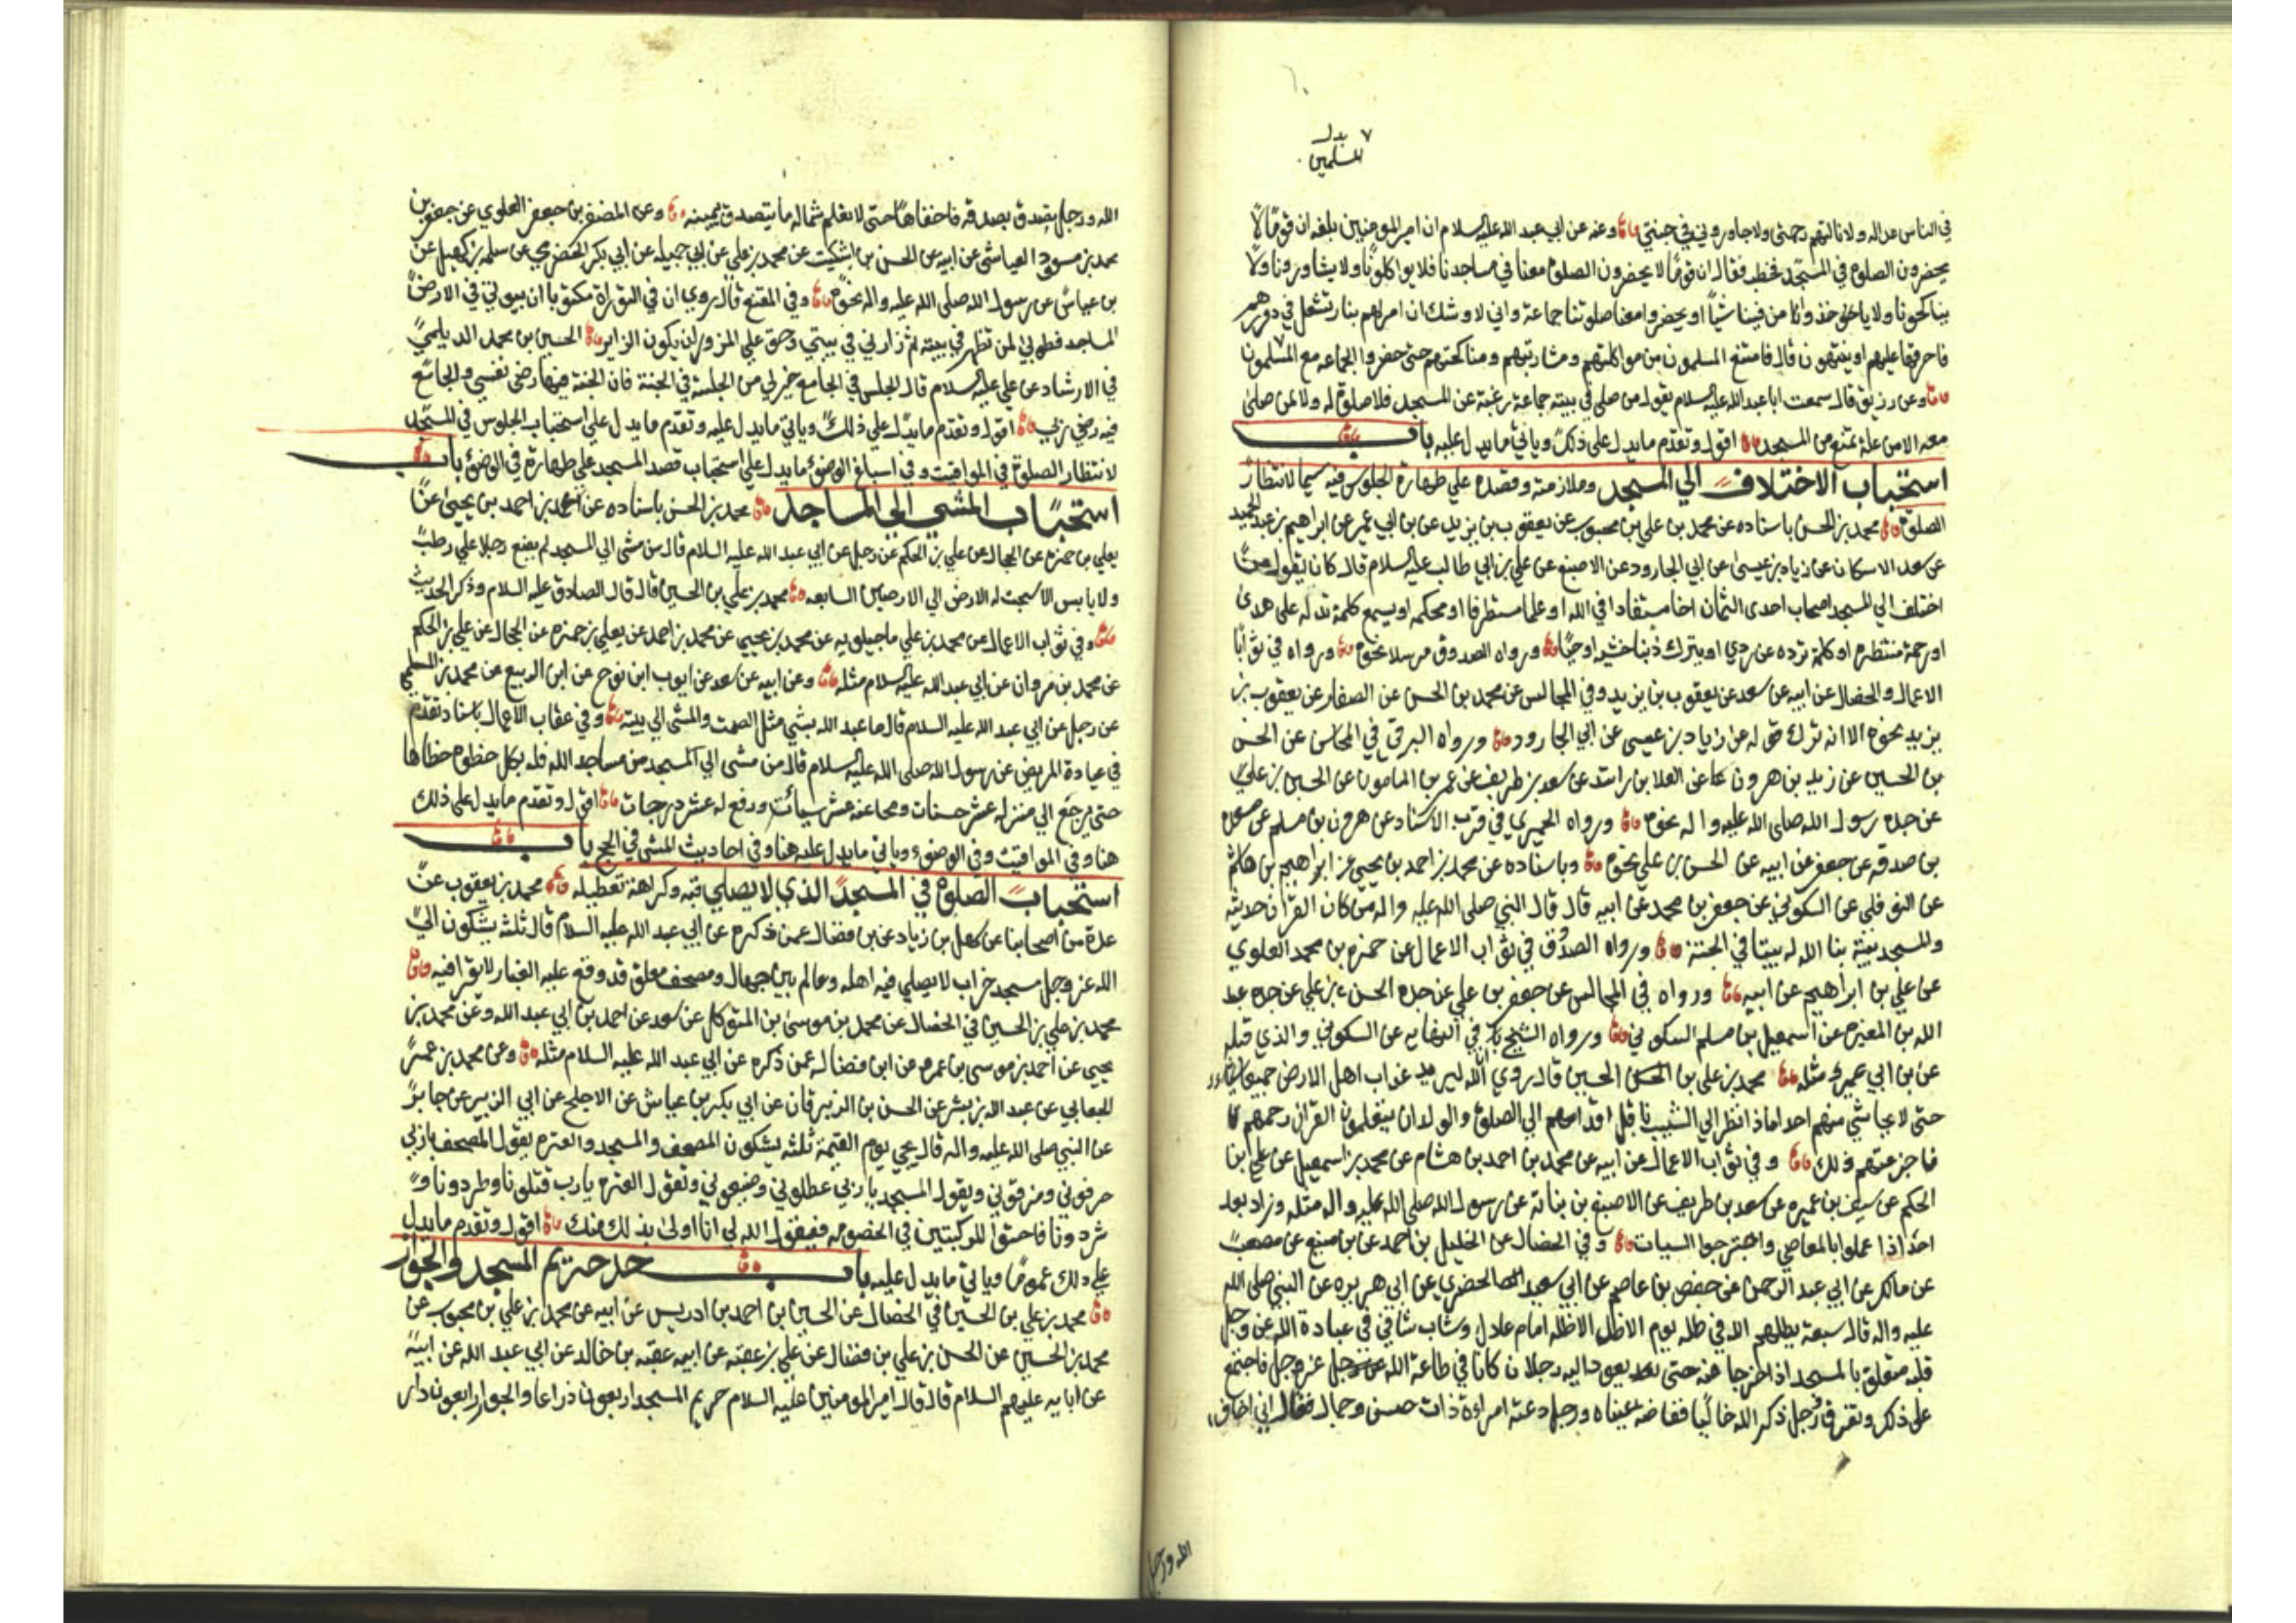 ٧ بدل
المسلمين
في الناس عداله ولا نالتهم رحمتي ولا جاوروني في جنتي وعنه عن ابي عبد الله عليه السلام ان امير المومنين بلغه ان قوما لا
يحضرون الصلوة في المسجد فخطب فقال ان قوما لا يحضرون الصلوة معنا في مساجدنا فلا يواكلونا ولا يشاربونا ولا يشاورونا ولا
يناكحونا ولا ياخذوا من فيئنا شيئا او يحضروا معنا صلوتنا جماعة واني لاوشك ان امر لهم بنار تشعل في دورهم
فاحرقها عليهم او ينتهون قال فامتنع المسلمون من مواكلتهم ومشاربتهم ومناكحتهم حتى حضروا الجماعه مع المسلمون
وعن رزيق قال سمعت ابا عبد الله عليه السلام يقول من صلى في بيته جماعة رغبة عن المسجد فلا صلوة له ولا لمن صلى
معه الا من علة تمنع من المسجد اقول وتقدم ما يدل على ذلك وياتي ما يدل عليه باب
استحباب الاختلاف الي المسجد وملازمته وقصده علي طهارة الجلوس فيه سيما لانتظار
الصلوة محمد بن الحسن باسناده عن محمد بن علي بن محبوب عن يعقوب بن يزيد عن بن ابي عمير عن ابراهيم بن عبد الحميد
عن سعد الاسكاف عن زياد بن عيسى عن ابي الجارود عن الاصبغ عن علي بن ابي طالب عليه السلام قال كان يقول من
اختلف الي المسجد اصاب احدى الثمان اخا مستفادا في الله او علما مستطرفا او محكمه او يسمع كلمة تدله على هدى
او رحمة منتظره او كلمة ترده عن ردي او يترك ذنبا خشيه او حيا ورواه الصدوق مرسلا نحوه ورواه في ثواب
الاعمال والخصال عن ابيه عن سعد عن يعقوب بن يزيد وفي المجالس عن محمد بن الحسن عن الصفار عن يعقوب بن
يزيد نحوه الا انه ترك قوله عن زياد بن عيسى عن ابي الجارود ورواه البرقي في المحاسن عن الحسن
بن الحسين عن زيد بن هرون عن العلا بن راشد عن سعد بن طريف عن عمير بن المامون عن الحسين بن علي
عن جده رسول الله صلى الله عليه واله نحوه ورواه الحميري في قرب الاسناد عن هرون بن مسلم عن
بن صدقه عن جعفر عن ابيه عن الحسن بن علي نحوه وباسناده عن محمد بن احمد بن يحيى عن ابراهيم بن هاشم
عن النوفلي عن السكوني عن جعفر بن محمد عن ابيه قال قال النبي صلى الله عليه واله من كان القرآن حديثه
والمسجد بيته بنا الله له بيتا في الجنة ورواه الصدوق في ثواب الاعمال عن حمزه بن محمد العلوي
عن علي بن ابراهيم عن ابيه ورواه في المجالس عن جعفر بن علي عن جده الحسن بن علي عن جده عبد
الله بن المغيره عن اسمعيل بن مسلم السكوني ورواه الشيخ في النهايه عن السكوني والذي قبله
عن بن ابي عمير مثله محمد بن علي بن الحسين قال روي ان الله ليريد عذاب اهل الارض جميعا
حتى لا يحاشي منهم احدا فاذا نظر الي الشيب ناقلي اقدامهم الي الصلوة والولدان يتعلمون القران رحمهم
فاخر عنهم ذلك وفي ثواب الاعمال عن ابيه عن محمد بن احمد بن هشام عن محمد بن اسمعيل عن علي ابن
الحكم عن سيف بن عميره عن سعد بن طريف عن الاصبغ بن نباتة عن رسول الله صلى الله عليه واله مثله وزاد بعد
احدا اذا عملوا بالمعاصي واجترحوا السيات وفي الخصال عن الخليل بن احمد عن بن منيع عن مصعب
عن مالك عن ابي عبد الرحمن عن حفص بن عاصم عن ابي سعيد الخضري عن ابي هريره عن النبي صلى الله
عليه واله قال سبعة يظلهم الله في ظله يوم لا ظل الا ظله امام عادل وشاب نشا في عبادة الله عز وجل
قلبه متعلق بالمسجد اذا خرجا عنه حتى يعود اليه ورجلان كانا في طاعة الله عز وجل فاجتمع
على ذلك وتفرقا ورجل ذكر الله خاليا ففاضت عيناه ورجل دعته امراة ذات حسن وجمال فقال اني اخاف
الله ورجل
الله ورجل يتصدق بصدقه فاخفاها حتى لا تعلم شماله ما يتصدق بيمينه وعن المضفر بن جعفر العلوي عن جعفر بن
محمد بن مسعود العياشي عن ابيه عن الحسن بن اشكيت عن محمد بن علي عن ابي جميله عن ابي بكر الحضرمي عن سلمه بن كهيل عن
بن عباس عن رسول الله صلى الله عليه واله نحوه وفي المقنع قال روي ان في التوراة مكتوبا ان بيوتي في الارض
المساجد فطوبي لمن تطهر في بيته ثم زارني في بيتي وحق علي المزور ان يكون الزاير الحسين بن محمد الديلمي
في الارشاد عن علي عليه السلام قال الجلس في الجامع خير لي من الجلسة في الجنة فان الجنة فيها رضي نفسي والجامع
فيه رضي ربي اقول وتقدم ما يدل علي ذلك وياتي ما يدل عليه وتقدم ما يدل علي استحباب الجلوس في المسجد
لانتظار الصلوة في المواقيت وفي اسباغ الوضوء ما يدل علي استحباب قصد المسجد علي طهارة في الوضوء باب
استحباب المشي الي المساجد محمد بن الحسن باسناده عن محمد بن احمد بن يحيى عن
يعلي بن حمزه عن الحجال عن علي بن الحكم عن رجل عن ابي عبد الله عليه السلام قال من مشى الي المسجد لم يضع رجلا علي رطب
ولا يابس الا سبحت له الارض الي الارضين السابعه محمد بن علي بن الحسين قال قال الصادق عليه السلام وذكر الحديث
وفي ثواب الاعمال عن محمد بن علي ماجيلويه عن محمد بن يحيى عن محمد بن احمد عن يعلي بن حمزه عن الحجال عن علي بن الحكم
عن محمد بن مروان عن ابي عبد الله عليه السلام مثله وعن ابيه عن سعد عن ايوب ابن نوح عن ابن الربيع عن محمد بن المسلمي
عن رجل عن ابي عبد الله عليه السلام قال ما عبد الله بشي مثل الصمت والمشي الي بيته وفي عقاب الاعمال باسناد تقدم
في عيادة المريض عن رسول الله صلى الله عليه السلام قال من مشى الي المسجد من مساجد الله فله بكل خطوه خطاها
حتى يرجع الي منزله عشر حسنات ومحا عنه عشر سيأت ورفع له عشر درجات اقول وتقدم ما يدل على ذلك
هنا وفي المواقيت وفي الوضوء وياتي ما يدل عليه هنا وفي احاديث المشي في الحج باب
استحباب الصلوة في المسجد الذي لا يصلي فيه وكراهة تعطيله محمد بن يعقوب عن
عدة من اصحابنا عن سهل بن زياد عن بن فضال عمن ذكره عن ابي عبد الله عليه السلام قال ثلثه يشكون الي
الله عز وجل مسجد خراب لا يصلي فيه اهله وعالم بين جهال ومصحف معلق قد وقع عليه الغبار لا يقرا فيه
محمد بن علي بن الحسين في الخصال عن محمد بن موسى بن المتوكل عن سعد عن احمد بن ابي عبد الله وعن محمد بن
يحيي عن احمد بن موسى بن عمره عن ابن فضال عمن ذكره عن ابي عبد الله عليه السلام مثله وعن محمد بن عمر
الجعابي عن عبد الله بن بشر عن الحسن بن الزبرقان عن ابي بكر بن عياش عن الاجلح عن ابي الزبير عن جابر
عن النبي صلى الله عليه واله قال يجي يوم القيمة ثلثه يشكون المصحف والمسجد والعتره يقول المصحف يا ربي
حرفوني ومزقوني ويقول المسجد يا ربي عطلوني وضيعوني وتقول العتره يا رب قتلونا وطردونا و
شردونا فاحشوا للركبتين في الخصومه فيقول الله لي انا اولى بذلك منك اقول وتقدم ما يدل
علي ذلك عموما وياتي ما يدل عليه باب حد حريم المسجد والجوار
محمد بن علي بن الحسين في الخصال عن الحسين بن احمد بن ادريس عن ابيه عن محمد بن علي بن محبوب عن
محمد بن الحسين عن الحسن بن علي بن فضال عن علي بن عقبه عن ابيه عقبه بن خالد عن ابي عبد الله عن ابيه
عن ابايه عليهم السلام قال قال امير المومنين عليه السلام حريم المسجد اربعون ذراعا والجوار اربعون دار